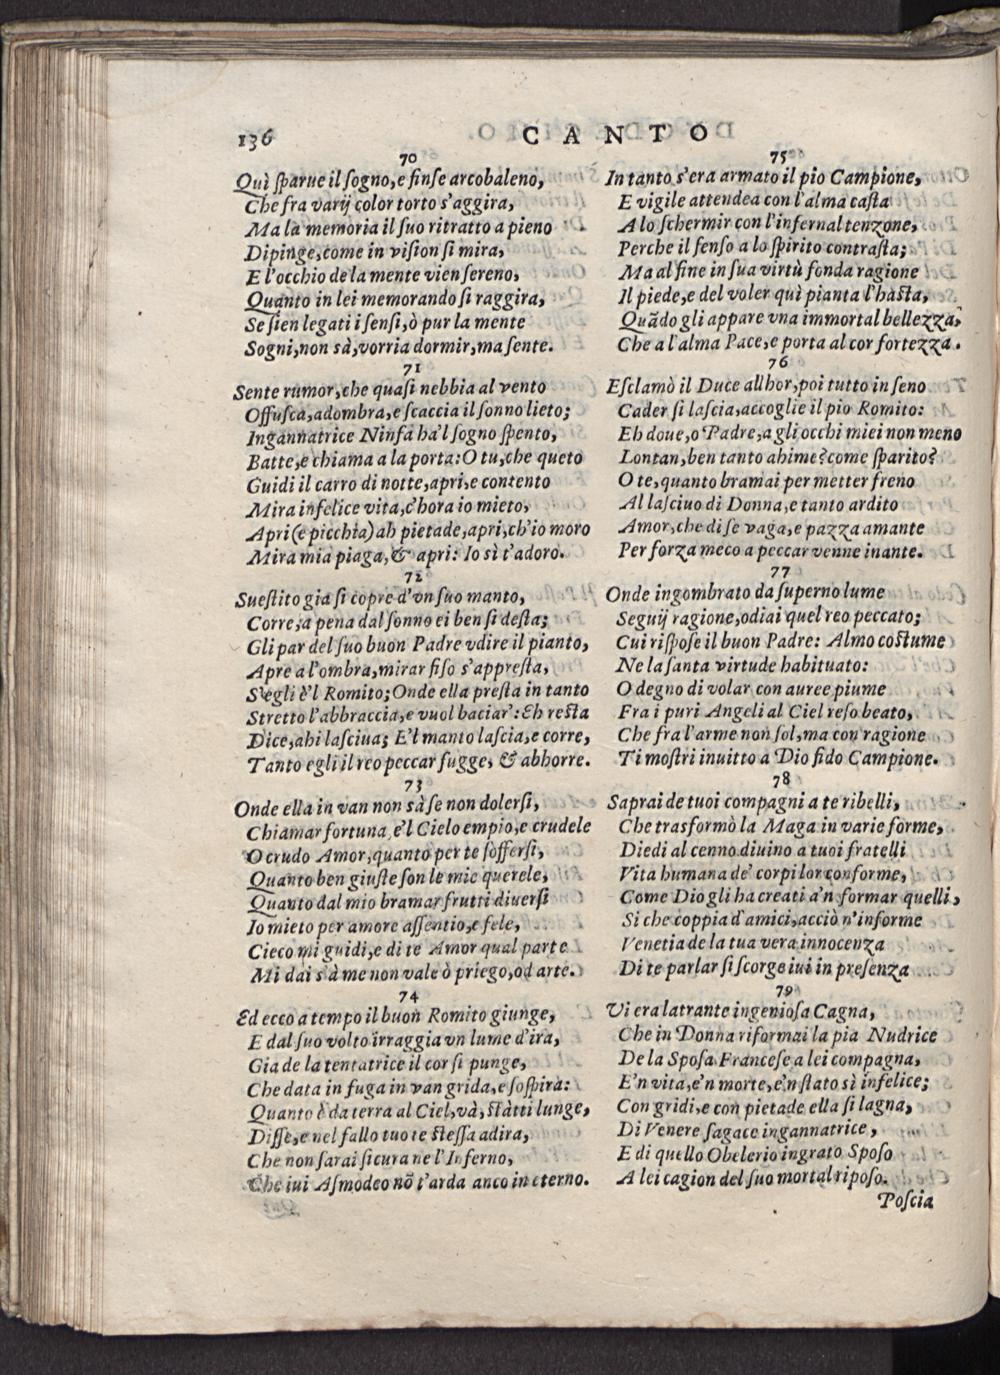 136
CANTO
70
Quì ſparue il ſogno, e finſe arcobaleno,
Che fra varij color torto s'aggira,
Ma la memoria il ſuo ritratto a pieno
Dipinge, come in viſion ſi mira,
E l'occhio de la mente vien ſereno,
Quanto in lei memorando ſi raggira,
Se ſien legati i ſenſi, ò pur la mente
Sogni, non sà, vorria dormir, ma ſente.
71
Sente rumor, che quaſi nebbia al vento
Offuſca, adombra, e ſcaccia il ſonno lieto;
Ingannatrice Ninfa ha'l ſogno ſpento,
Batte, e chiama a la porta: O tu, che queto
Guidi il carro di notte, apri, e contento
Mira infelice vita, c'hora io mieto,
Apri (e picchia) ah pietade, apri, ch'io moro
Mira mia piaga, & apri: Io sì t'adoro.
72
Sueſtito gia ſi copre d'vn ſuo manto,
Corre, a pena dal ſonno ei ben ſi deſta;
Gli par del ſuo buon Padre vdire il pianto,
Apre a l'ombra, mirar fiſo s'appreſta,
Svegli è'l Romito; Onde ella preſta in tanto
Stretto l'abbraccia, e vuol baciar': Eh reſta
Dice, ahi laſciua; E'l manto laſcia, e corre,
Tanto egli il reo peccar fugge, & abhorre.
73
Onde ella in van non sà ſe non dolerſi,
Chiamar fortuna, e'l Cielo empio, e crudele
O crudo Amor, quanto per te ſofferſi,
Quanto ben giuſte ſon le mie querele,
Quanto dal mio bramar frutti diuerſi
Io mieto per amore aſſentio, e fele,
Cieco mi guidi, e di te Amor qual parte
Mi dai s'à me non vale ò priego, od arte.
74
Ed ecco a tempo il buon Romito giunge,
E dal ſuo volto irraggia vn lume d'ira,
Gia de la tentatrice il cor ſi punge,
Che data in fuga in van grida, e ſoſpira:
Quanto è da terra al Ciel, và, ſtàtti lunge,
Diſſe, e nel fallo tuo te ſteſſa adira,
Che non ſarai ſicura ne l'Inferno,
Che iui Aſmodeo nõ t'arda anco in eterno.
75
In tanto s'era armato il pio Campione,
E vigile attendea con l'alma caſta
A lo ſchermir con l'infernal tenzone,
Perche il ſenſo a lo ſpirito contraſta;
Ma al fine in ſua virtù fonda ragione
Il piede, e del voler quì pianta l'haſta,
Quãdo gli appare vna immortal bellezza,
Che a l'alma Pace, e porta al cor fortezza.
76
Eſclamò il Duce allhor, poi tutto in ſeno
Cader ſi laſcia, accoglie il pio Romito:
Eh doue, o Padre, a gli occhi miei non meno
Lontan, ben tanto ahime? come ſparito?
O te, quanto bramai per metter freno
Al laſciuo di Donna, e tanto ardito
Amor, che di ſe vaga, e pazza amante
Per forza meco a peccar venne inante.
77
Onde ingombrato da ſuperno lume
Seguij ragione, odiai quel reo peccato;
Cui riſpoſe il buon Padre: Almo coſtume
Ne la ſanta virtude habituato:
O degno di volar con auree piume
Fra i puri Angeli al Ciel reſo beato,
Che fra l'arme non ſol, ma con ragione
Ti moſtri inuitto a Dio fido Campione.
78
Saprai de tuoi compagni a te ribelli,
Che trasformò la Maga in varie forme,
Diedi al cenno diuino a tuoi fratelli
Vita humana de' corpi lor conforme,
Come Dio gli ha creati a'n formar quelli,
Si che coppia d'amici, acciò n'informe
Venetia de la tua vera innocenza
Di te parlar ſi ſcorge iui in preſenza
79
Vi era latrante ingenioſa Cagna,
Che in Donna riformai la pia Nudrice
De la Spoſa Franceſe a lei compagna,
E'n vita, e'n morte, e'n ſtato sì infelice;
Con gridi, e con pietade ella ſi lagna,
Di Venere ſagace ingannatrice,
E di quello Obelerio ingrato Spoſo
A lei cagion del ſuo mortal ripoſo.
Poſcia